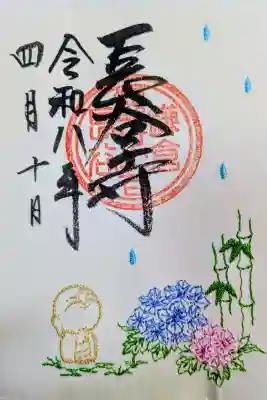 長谷寺
令和八年
四月十日